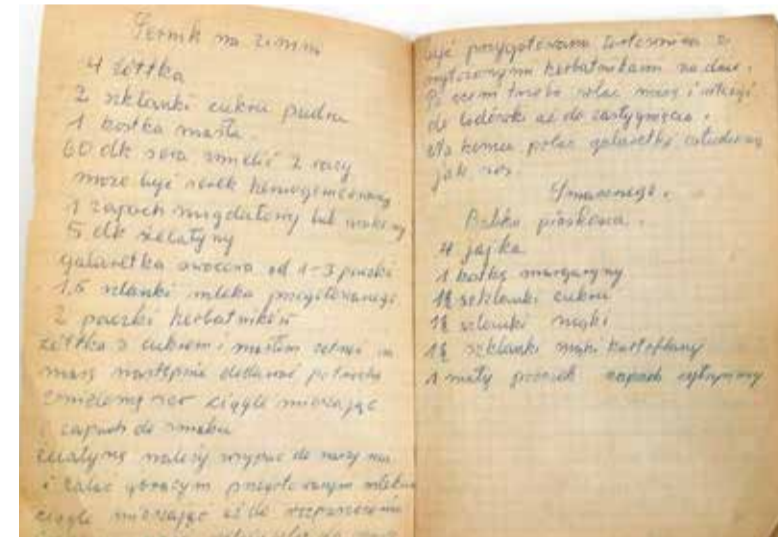 Sernik na zimno
4 żółtka
2 szklanki cukru pudru
1 kostka masła.
60 dk sera zmielić 2 razy
może być serek homogenizowany
1 zapach migdałowy lub
5 dk żelatyny
galaretka owocowa od 1-3 paczki
1,5 szlanki mleka przegotowanego
2 paczki herbatników
żółtka z cukrem i masłem zetrzeć na
masę następnie dodawać po trochu
zmielony ser ciągle mieszając
i zapach do smaku
żelatynę należy wsypać do
i zalać gorącym przegotowanym mlekiem
ciągle mieszając aż do rozpuszczenia
być przygotowana tortownica z
wyłożonymi herbatnikami na dnie.
Po czym trzeba wlać masę i włożyć
do lodówki aż do zastygnięcia.
Na koniec polać galaretką
jak
Smacznego.
Babka piaskowa.
4 jajka
1 kostkę margaryny
1½ szklanki cukru
1½ szlanki mąki
1½ szklanki mąki kartoflanej
1 mały proszek zapach cytrynowy